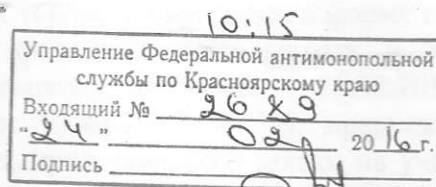 10:15
Управление Федеральной антимонопольной
службы по Красноярскому краю
Входящий № 2689
"24" 02 2016 г.
Подпись